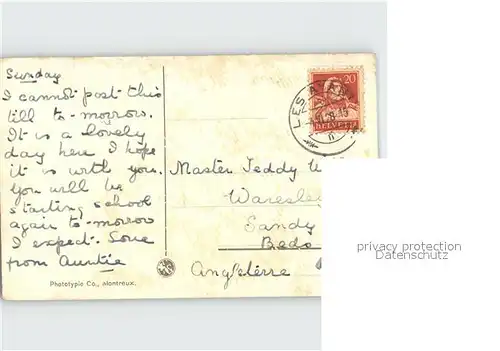 Sunday
I cannot post this
till to-morrow.
It is a lovely
day here I hope
it is with you.
You will be
starting school
again to-morrow
I expect. Love
from Auntie
Master Teddy
Waresley
Sandy
Beds
Angleterre
20
HELVETIA
LES AVANTS
Phototypie Co., Montreux.
privacy protection
Datenschutz